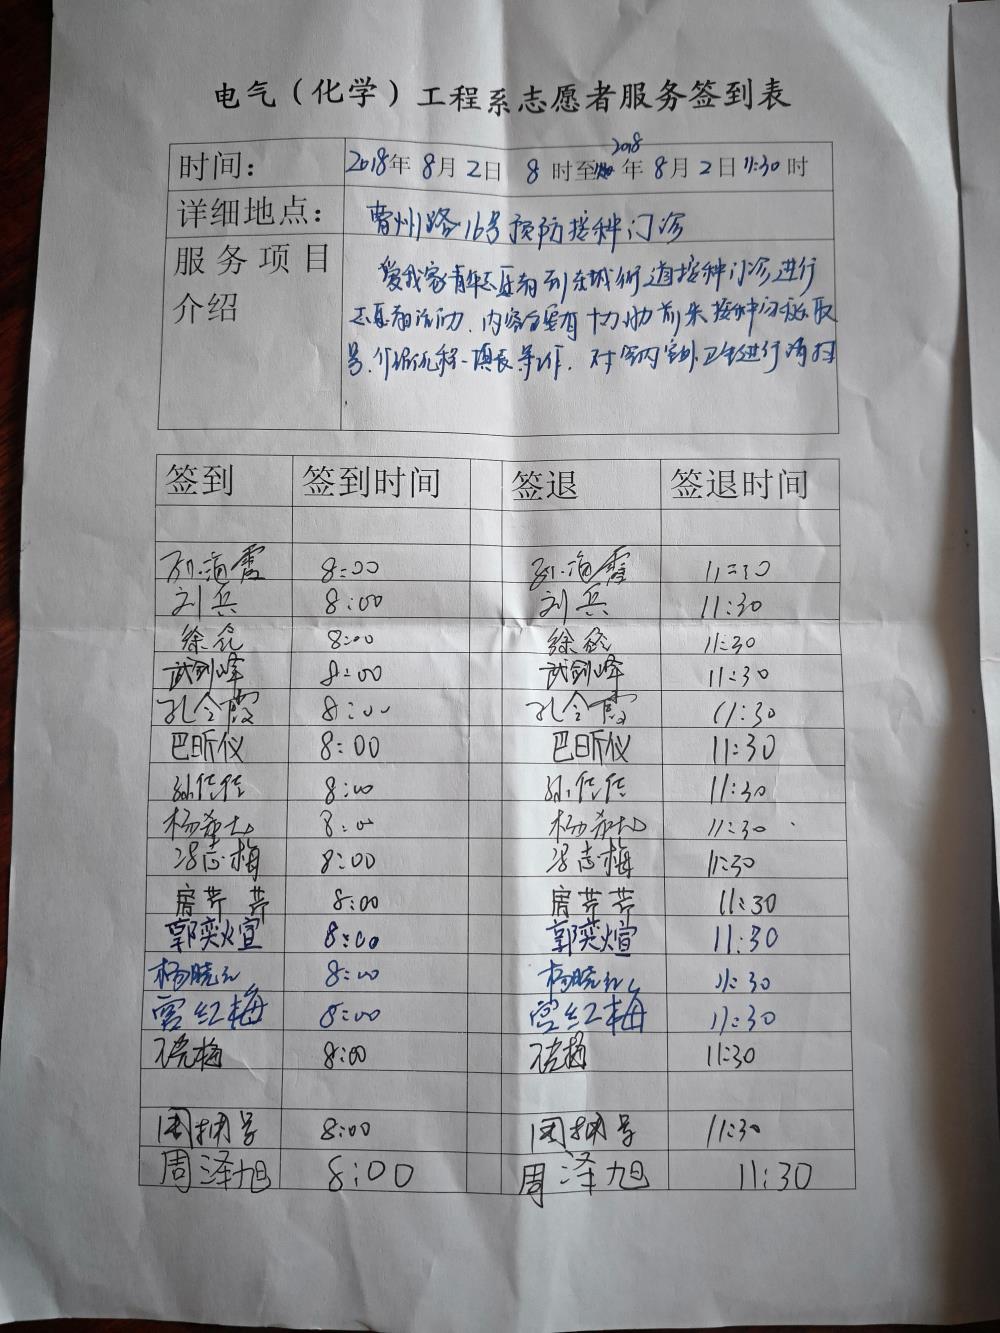 电气（化学）工程系志愿者服务签到表
时间： 2018年 8月2日 8时至2018年 8月2日11:30时
详细地点： 曹州路16号预防接种门诊
服务项目介绍
爱我家青年志愿者到东城街道接种门诊进行
志愿者活动，内容主要有协助前来接种门诊取
号、介绍流程、填表等工作，对室内室外卫生进行清扫
签到 签到时间 签退 签退时间
孙海霞 8:00 孙海霞 11:30
刘兵 8:00 刘兵 11:30
徐 8:00 徐 11:30
武剑峰 8:00 武剑峰 11:30
孔令霞 8:00 孔令霞 11:30
巴昕仪 8:00 巴昕仪 11:30
孙佳佳 8:00 孙佳佳 11:30
杨 8:00 杨 11:30
冯志梅 8:00 冯志梅 11:30
房芹芹 8:00 房芹芹 11:30
郭奕煊 8:00 郭奕煊 11:30
杨晓红 8:00 杨晓红 11:30
宫红梅 8:00 宫红梅 11:30
梅 8:00 梅 11:30
8:00 11:30
周泽旭 8:00 周泽旭 11:30